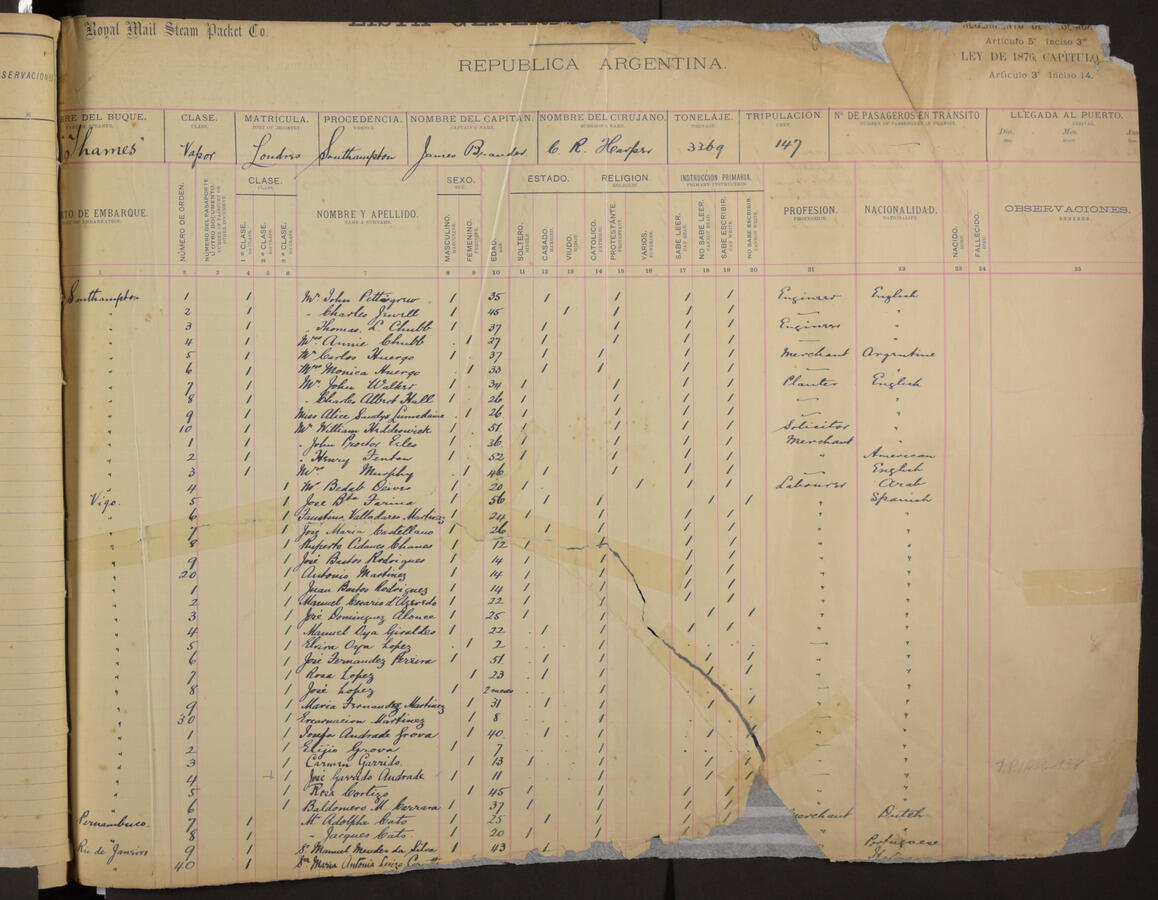 Royal Mail Steam Packet Co.
LISTA GENERAL
Artículo 5º Inciso 3º
LEY DE 1876, CAPÍTULO
REPUBLICA ARGENTINA.
Artículo 3º Inciso 14.
BRE DEL BUQUE. CLASE. MATRÍCULA. PROCEDENCIA. NOMBRE DEL CAPITAN. NOMBRE DEL CIRUJANO. TONELAJE. TRIPULACIÓN. Nº DE PASAGEROS EN TRÁNSITO. LLEGADA AL PUERTO.
Thames" Vapor Londres Southampton James Brander C. R. Harper 3369 147
SERVACIONES
CLASE. SEXO. ESTADO. RELIGION. INSTRUCCIÓN PRIMARIA.
TO DE EMBARQUE. NÚMERO DE ORDEN. NÚMERO DEL PASAPORTE U OTRO DOCUMENTO. 1ª CLASE. 2ª CLASE. 3ª CLASE. NOMBRE Y APELLIDO. MASCULINO. FEMENINO. EDAD. SOLTERO. CASADO. VIUDO. CATOLICO. PROTESTANTE. VARIOS. SABE LEER. NO SABE LEER. SABE ESCRIBIR. NO SABE ESCRIBIR. PROFESION. NACIONALIDAD. NACIDO. FALLECIDO. OBSERVACIONES.
1 2 3 4 5 6 7 8 9 10 11 12 13 14 15 16 17 18 19 20 21 22 23 24 25
Southampton 1 1 Mr John Pettigrew 1 35 1 1 1 1 Engineer English
" 2 1 " Charles Jewell 1 45 1 1 1 1 — "
" 3 1 " Thomas. L. Chubb 1 37 1 1 1 1 Engineer "
" 4 1 Mrs Annie Chubb 1 27 1 1 1 1 — "
" 5 1 Mr Carlos Huergo 1 37 1 1 1 1 Merchant Argentine
" 6 1 Mrs Monica Huergo 1 33 1 1 1 1 — "
" 7 1 Mr John Walker 1 34 1 1 1 1 Planter English
" 8 1 " Charles Albert Hall 1 26 1 1 1 1 — "
" 9 1 Miss Alice 1 26 1 1 1 1 — "
" 10 1 Mr William 1 51 1 1 1 1 Solicitor "
" 1 1 " John Proctor 1 36 1 1 1 1 Merchant "
" 2 1 " Henry Fenton 1 52 1 1 1 1 " American
" 3 1 Mrs Murphy 1 46 1 1 1 1 — English
" 4 1 Mr Bedab 1 20 1 1 1 1 Labourer Arab
Vigo. 5 1 José Bta Farina 1 56 1 1 1 1 " Spanish
" 6 1 Faustino Valladares Martinez 1 24 1 1 1 1 " "
" 7 1 José Maria Castellano 1 26 1 1 1 1 " "
" 8 1 Ruperto Cidanes Chamos 1 12 1 1 1 1 " "
" 9 1 José Bastos Rodrigues 1 14 1 1 1 1 " "
" 20 1 Antonio Martinez 1 14 1 1 1 1 " "
" 1 1 Juan Bastos Rodriguez 1 14 1 1 1 1 " "
" 2 1 Manuel 1 22 1 1 1 1 " "
" 3 1 José Dominguez Alonce 1 25 1 1 1 1 " "
" 4 1 Manuel Oya Giraldez 1 22 1 1 1 1 " "
" 5 1 Elvira Oya Lopez 1 2 1 — "
" 6 1 José Fernandez Pereira 1 51 1 1 1 1 " "
" 7 1 Rosa Lopez 1 23 1 1 1 1 — "
" 8 1 José Lopez 1 2 meses 1 — "
" 9 1 Maria Fernandez Martinez 1 31 1 1 1 1 — "
" 30 1 Encarnacion Martinez 1 8 1 — "
" 1 1 Josefa Andrade Grova 1 40 1 1 — "
" 2 1 Elijio Grova 1 7 1 — "
" 3 1 Carmen Garrido 1 13 1 1 1
" 4 1 José Garrido Andrade 1 11 1 1 1
" 5 1 Rosa Cortizo 1 45 1 1 1
" 6 1 Baldomero M. 1 37 1 1 1 1
Pernambuco. 7 1 Mr Adolphe Cats 1 25 1 1 1 erchant Dutch
" 8 1 " Jacques Cats 1 20 1 1 1 "
Rio de Janeiro 9 1 Sr Manuel Mendes da Silva 1 43 1 Portuguese
" 40 1 Sra Maria Antonia